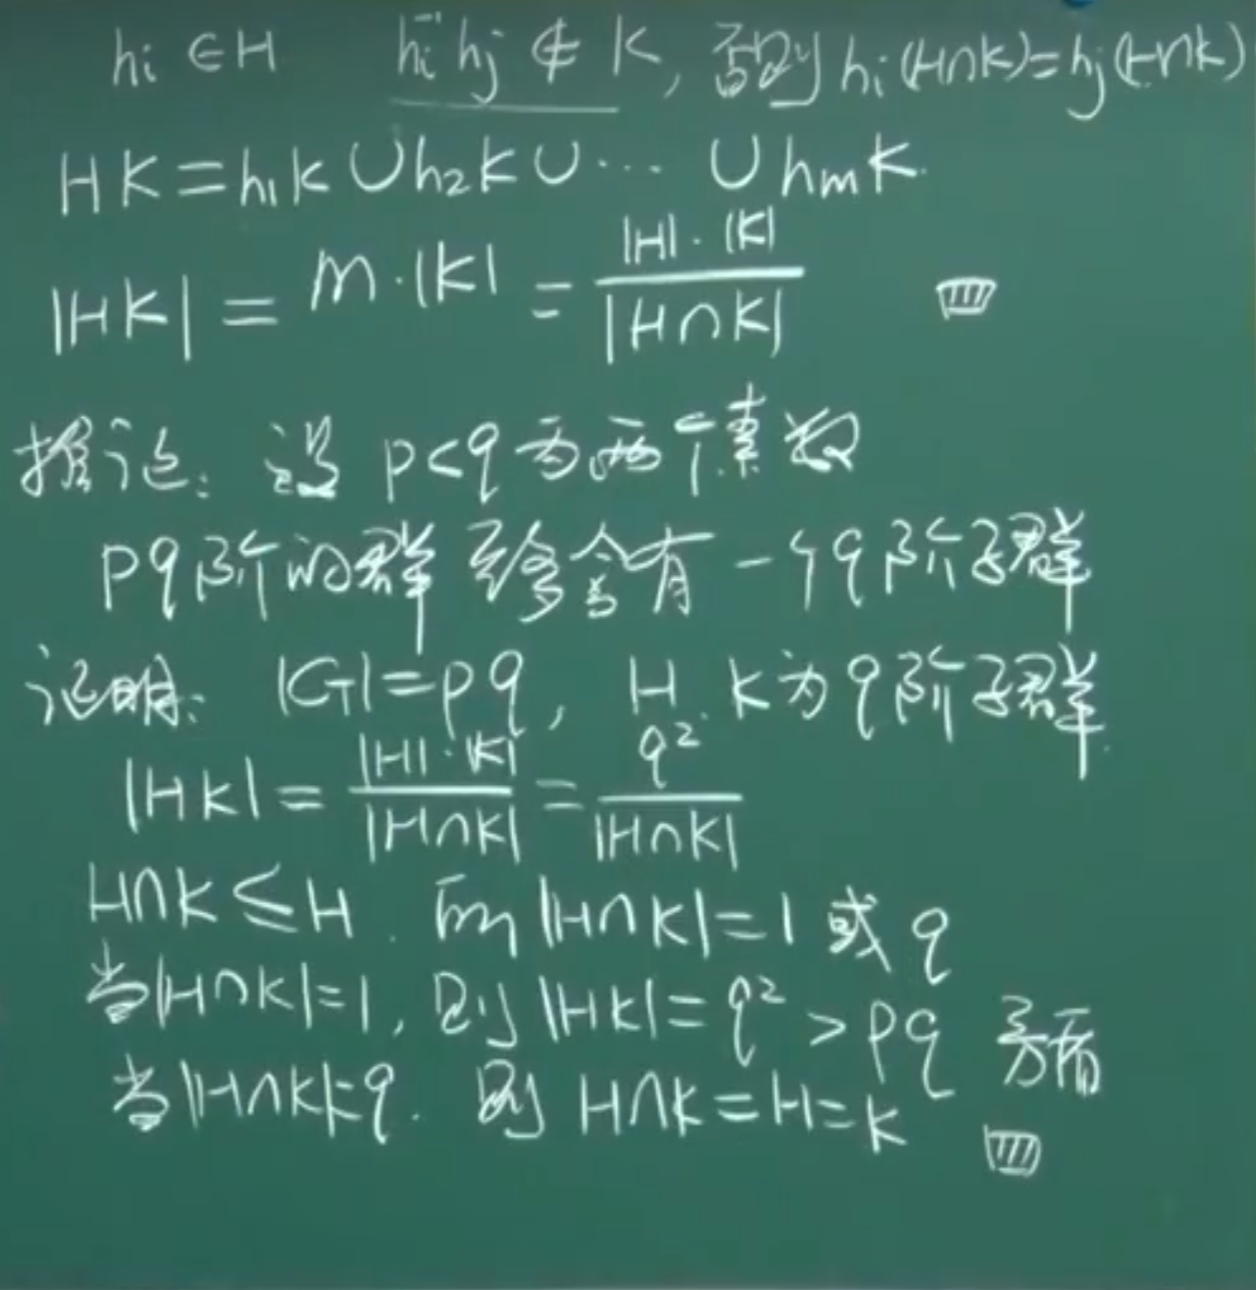 hi ∈ H  hi⁻¹hj ∉ K, 否则 hi(H∩K)=hj(H∩K)
HK=h₁K∪h₂K∪⋯ ∪hmK.
|HK| = m·|K| = |H|·|K| / |H∩K|
推论: 设 p<q 为两个素数
pq阶的群至多含有一个q阶子群
证明: |G|=pq, H. K为q阶子群.
|HK| = |H|·|K| / |H∩K| = q² / |H∩K|
H∩K≤H. 而 |H∩K|=1 或 q
当|H∩K|=1, 则 |HK|=q²>pq 矛盾
当|H∩K|=q. 则 H∩K=H=K